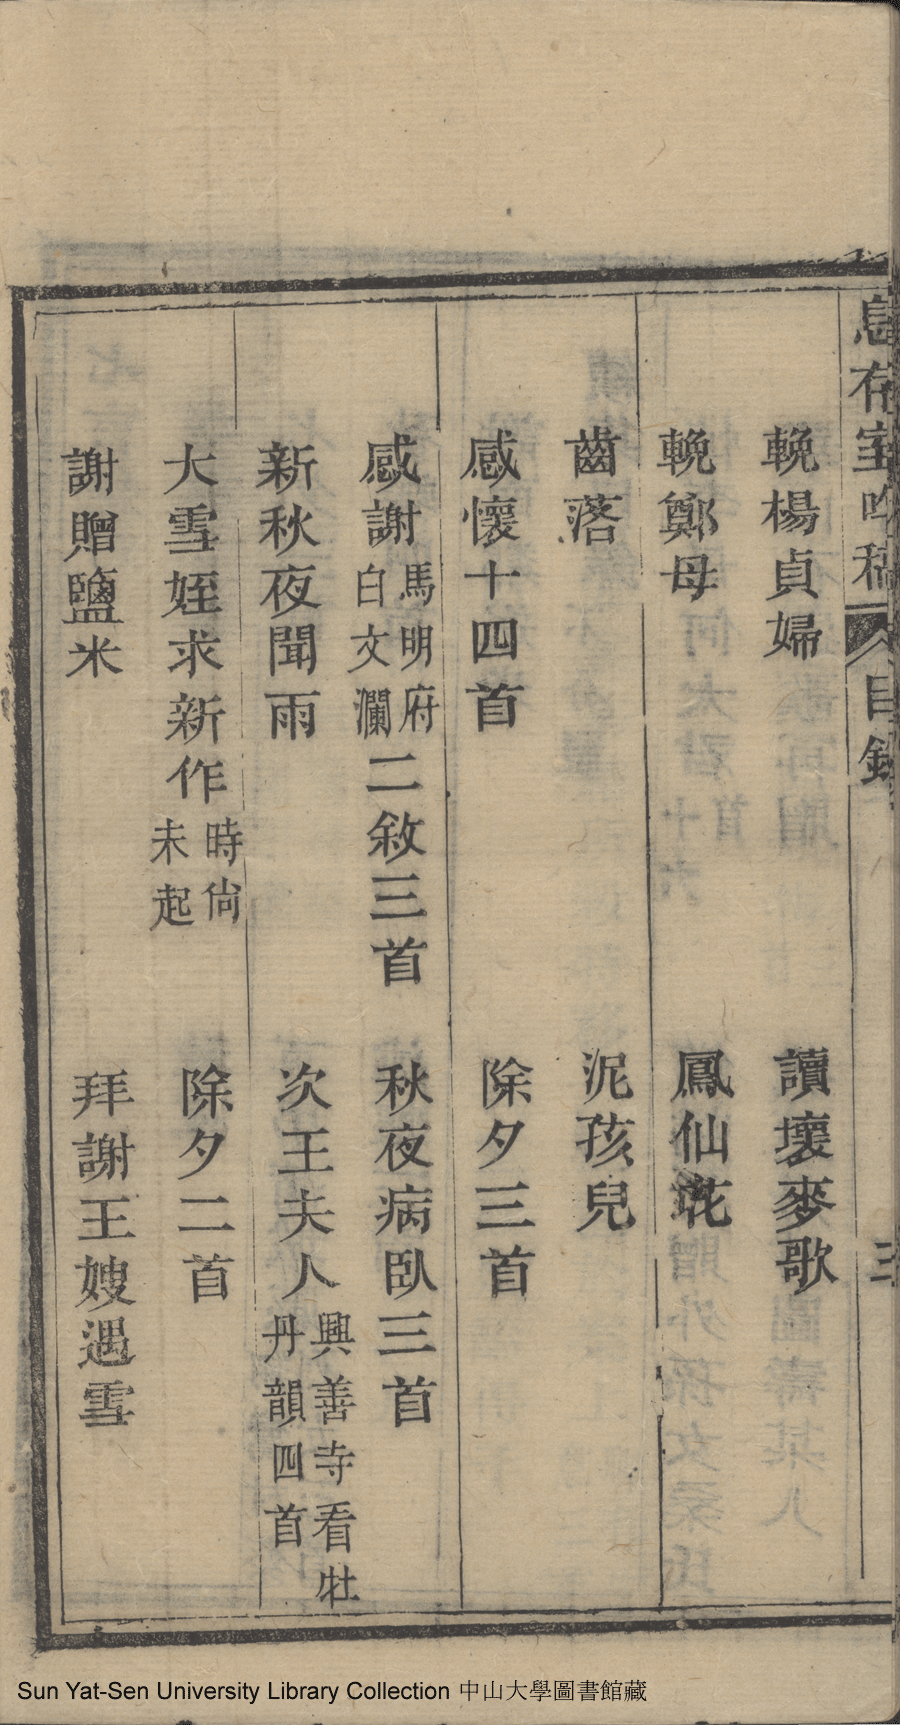 息存室吟稿 目錄 三
輓楊貞婦 讀壞麥歌
輓鄭母 鳳仙花
齒落 泥孩兒
感懷十四首 除夕三首
感謝馬明府白文瀾二敘三首 秋夜病臥三首
新秋夜聞雨 次王夫人興善寺看牡丹韻四首
大雪姪求新作時尙未起 除夕二首
謝贈鹽米 拜謝王嫂遇雪
Sun Yat-Sen University Library Collection 中山大學圖書館藏